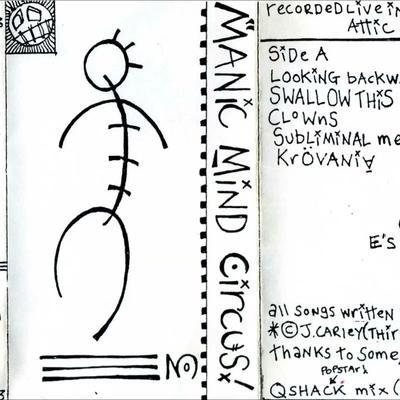 MANiC MiND CiRCUS!
recorDeD Live iN
Attic
SiDe A
LOOKiNG bACKW
SWALLOW THiS
CLOWNS
SubLiMiNAL me
KrÖVANiA
E'S
ALL SONGS WRiTTEN
*©J.CARLEY(THir
tHANKS to Some
POPSTAR
QSHACK mix (